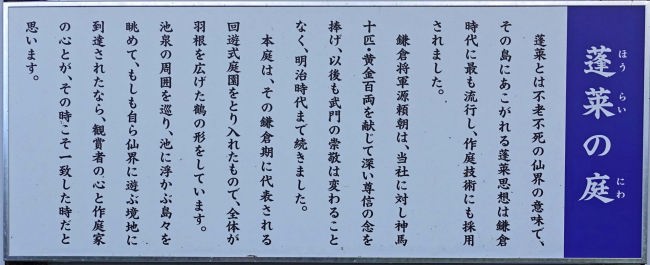 蓬萊の庭
ほうらい にわ
蓬萊とは不老不死の仙界の意味で、
その島にあこがれる蓬萊思想は鎌倉
時代に最も流行し、作庭技術にも採用
されました。
鎌倉将軍源頼朝は、当社に対し神馬
十匹・黄金百両を献じて深い尊信の念を
捧げ、以後も武門の崇敬は変わること
なく、明治時代まで続きました。
本庭は、その鎌倉期に代表される
回遊式庭園をとり入れたもので、全体が
羽根を広げた鶴の形をしています。
池泉の周囲を巡り、池に浮かぶ島々を
眺めて、もしも自ら仙界に遊ぶ境地に
到達されたなら、観賞者の心と作庭家
の心とが、その時こそ一致した時だと
思います。